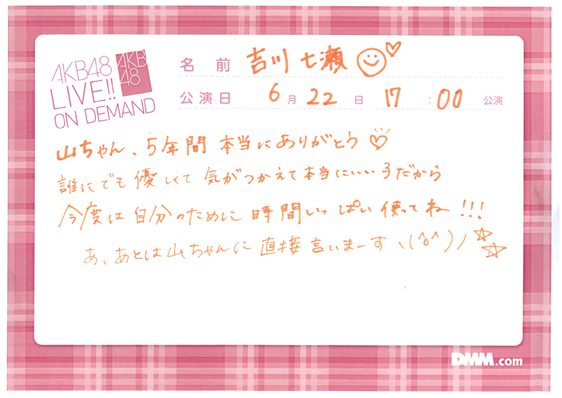 AKB48
LIVE!!
ON DEMAND
AKB
48
名前 吉川七瀬
公演日 6月22日 17:00 公演
山ちゃん、5年間本当にありがとう
誰にでも優しくて気がつかえて本当にいい子だから
今度は自分のために時間いっぱい使ってね!!!
あ、あとは山ちゃんに直接言いまーすヽ(^o^)ノ
DMM.com